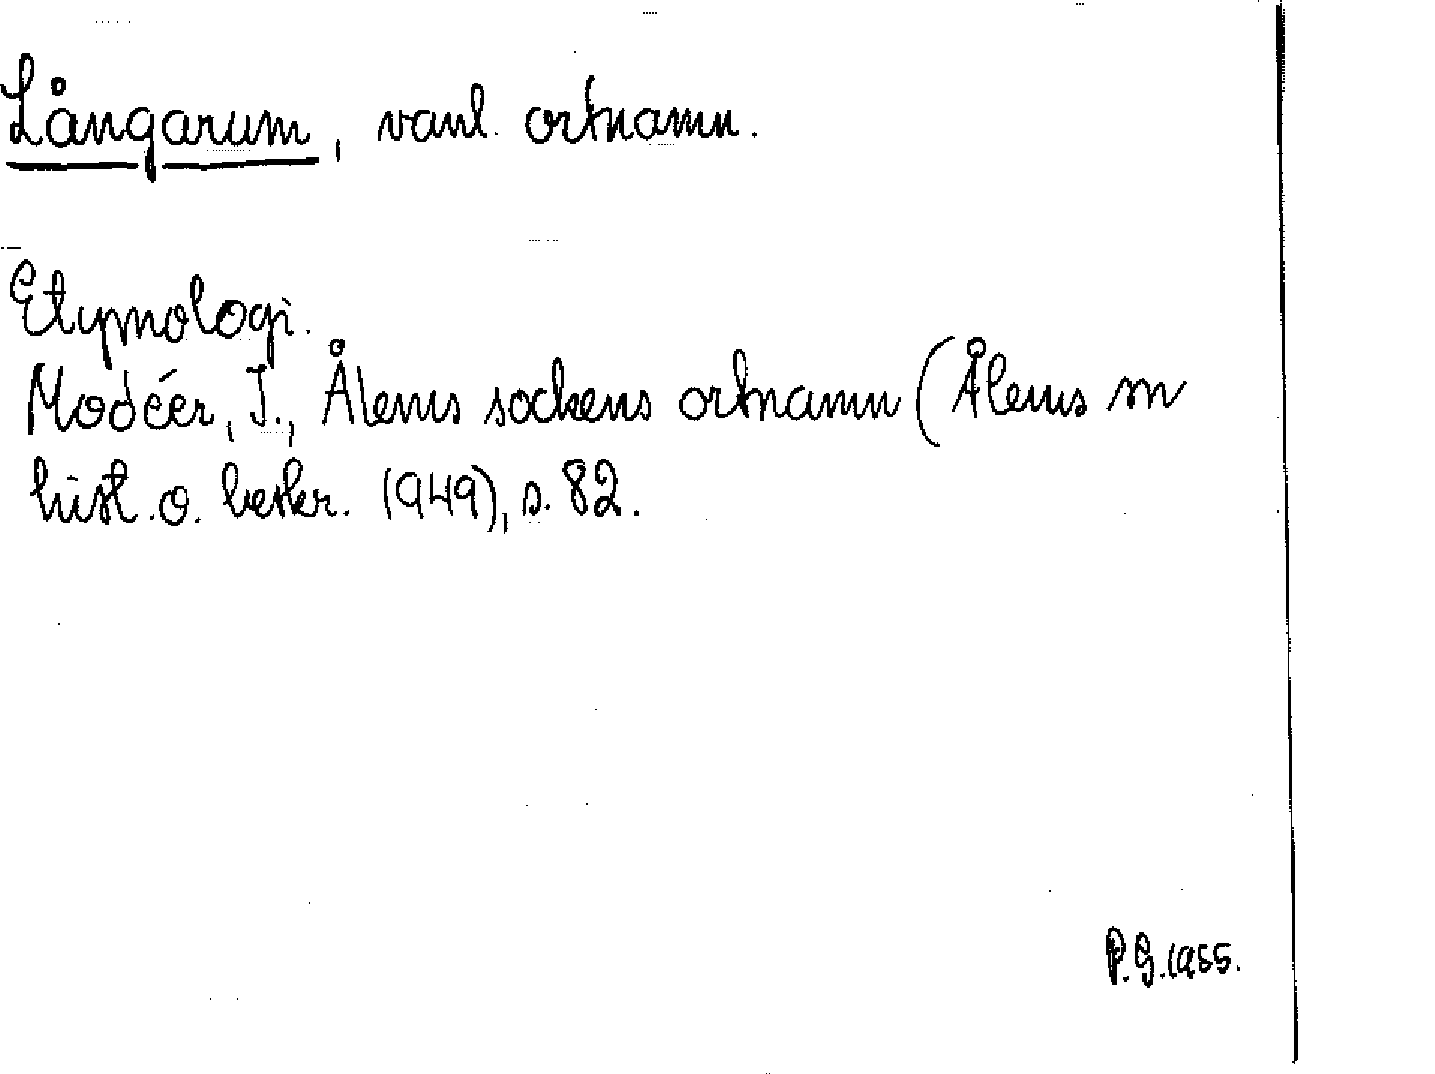 Långarum, vanl. ortnamn.
Etymologi.
Modéer, I., Ålems sockens ortnamn (Ålems sn
hist. o. beskr. 1949), s. 82.
P.G. 1955.